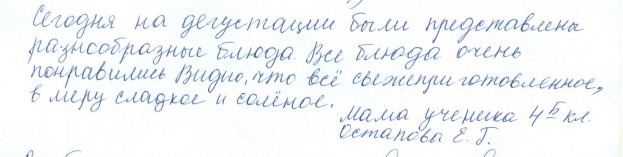 Сегодня на дегустации были представлены
разнообразные блюда. Все блюда очень
понравились Видно, что всё свежеприготовленное,
в меру сладкое и солёное.
Мама ученика 4 Б кл.
Остапова Е. Г.